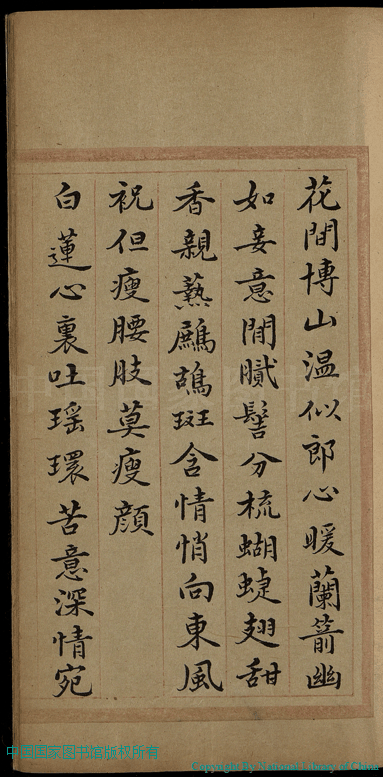 花間博山温似郎心暖蘭箭幽
如妾意閒膩髻分梳蝴蜨翅甜
香親爇鷓鴣斑含情悄向東風
祝但瘦腰肢莫瘦顔
白蓮心裏吐瑶環苦意深情宛
中国国家图书馆版权所有
Copyright By National Library of China